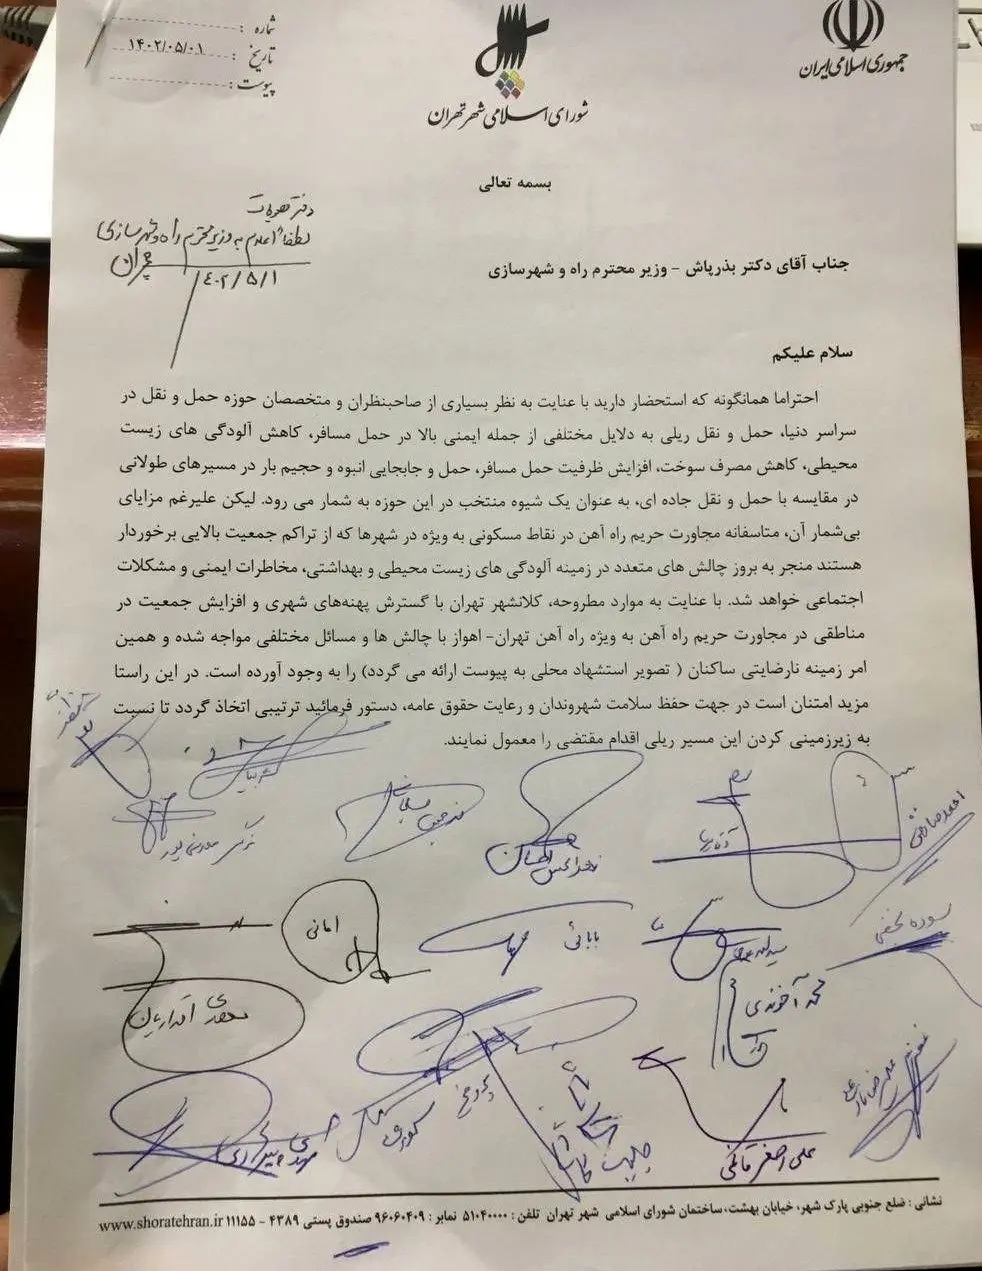 جمهوری اسلامی ایران
شورای اسلامی شهر تهران
شماره :
تاریخ : ۱۴۰۲/۰۵/۰۱
پیوست :
بسمه تعالی
لطفاً اعلام به وزیر محترم راه و شهرسازی
چمران
۱۴۰۲/۵/۱
جناب آقای دکتر بذرپاش - وزیر محترم راه و شهرسازی
سلام علیکم
احتراما همانگونه که استحضار دارید با عنایت به نظر بسیاری از صاحبنظران و متخصصان حوزه حمل و نقل در
سراسر دنیا، حمل و نقل ریلی به دلایل مختلفی از جمله ایمنی بالا در حمل مسافر، کاهش آلودگی های زیست
محیطی، کاهش مصرف سوخت، افزایش ظرفیت حمل مسافر، حمل و جابجایی انبوه و حجیم بار در مسیرهای طولانی
در مقایسه با حمل و نقل جاده ای، به عنوان یک شیوه منتخب در این حوزه به شمار می رود. لیکن علیرغم مزایای
بی‌شمار آن، متاسفانه مجاورت حریم راه آهن در نقاط مسکونی به ویژه در شهرها که از تراکم جمعیت بالایی برخوردار
هستند منجر به بروز چالش های متعدد در زمینه آلودگی های زیست محیطی و بهداشتی، مخاطرات ایمنی و مشکلات
اجتماعی خواهد شد. با عنایت به موارد مطروحه، کلانشهر تهران با گسترش پهنه‌های شهری و افزایش جمعیت در
مناطقی در مجاورت حریم راه آهن به ویژه راه آهن تهران- اهواز با چالش ها و مسائل مختلفی مواجه شده و همین
امر زمینه نارضایتی ساکنان ( تصویر استشهاد محلی به پیوست ارائه می گردد) را به وجود آورده است. در این راستا
مزید امتنان است در جهت حفظ سلامت شهروندان و رعایت حقوق عامه، دستور فرمائید ترتیبی اتخاذ گردد تا نسبت
به زیرزمینی کردن این مسیر ریلی اقدام مقتضی را معمول نمایند.
احمد صادقی
نرگس معدنی پور
سوده نجفی
بابائی
امانی
محمد آخوندی
مهدی اقراریان
علی اصغر قائمی
نشانی : ضلع جنوبی پارک شهر، خیابان بهشت، ساختمان شورای اسلامی شهر تهران تلفن : ۵۱۰۴۰۰۰۰ نمابر : ۹۶۰۶۰۴۰۹ صندوق پستی ۴۳۸۹ - ۱۱۱۵۵ www.shoratehran.ir